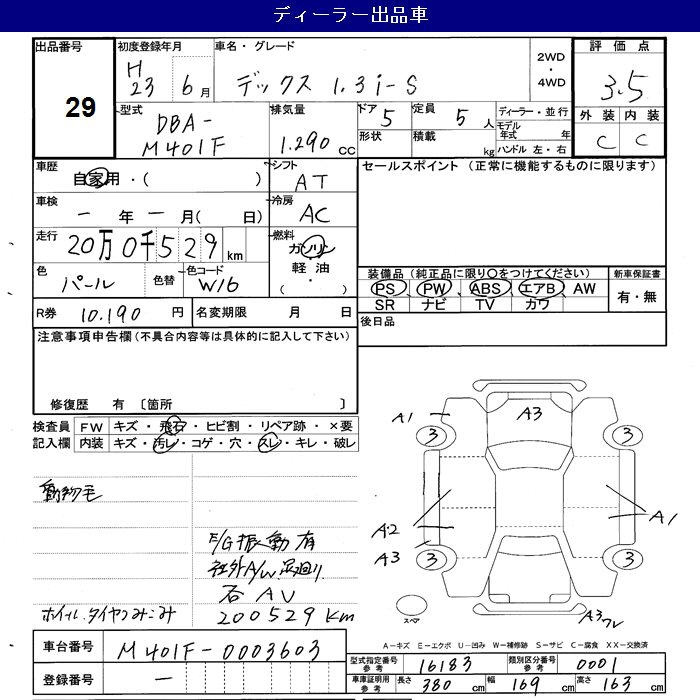 ディーラー出品車
出品番号 29
初度登録年月 H 23 6月
車名・グレード デックス 1.3i-S
2WD・4WD
評価点 3.5
外装 内装
C C
型式 DBA-M401F
排気量 1.290 cc
ドア 5
定員 5人
形状 積載 kg
ディーラー・並行
モデル年式 年
ハンドル 左・右
車歴 自家用・( )
シフト AT
セールスポイント (正常に機能するものに限ります)
車検 ー年ー月( 日)
冷房 AC
走行 20万0千529km
燃料 ガソリン 軽油・( )
色 パール 色替
色コード W16
装備品 (純正品に限り○をつけてください) 新車保証書
PS PW ABS エアB AW 有・無
SR ナビ TV カワ
R券 10.190 円
名変期限 月 日
後日品
注意事項申告欄(不具合内容等は具体的に記入して下さい)
修復歴 有 〔箇所 〕
検査員記入欄
FW キズ・飛石・ヒビ割・リペア跡・×要
内装 キズ・汚レ・コゲ・穴・スレ・キレ・破レ
動物毛
E/G振動有
社外A/W、足廻り
200529Km
ホイール.タイヤつみこみ
A1 A3
3 3
A2 A1
A3
3 3
スペア
A3ワレ
車台番号 M401F-0003603
登録番号 ー
A-キズ E-エクボ U-凹み W-補修跡 S-サビ C-腐食 XX-交換済
型式指定番号 参考 16183
類別区分番号 参考 0001
車庫証明用 参考 長さ 380 cm 幅 169 cm 高さ 163 cm